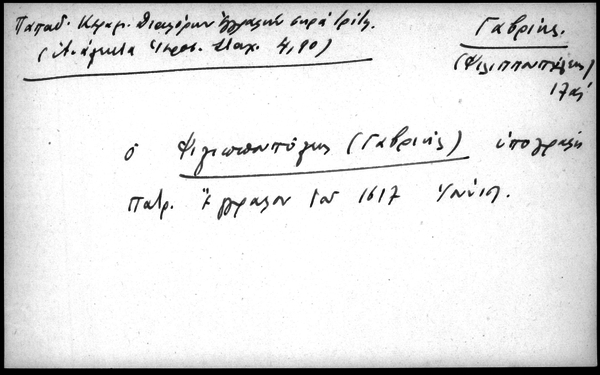 Παπαδ. Κεραμ. Διαφόρων ἐγγραφων σειρά τρίτη.
(Ἀνάλεκτα Ἱερος. Σταχ. 4, 90)
Γαβριήλ.
(Φιλιππουπόλεως)
17ος
ὁ Φιλιππουπόλεως (Γαβριήλ) ὑπογράφει
πατρ. Ἔγγραφον τοῦ 1617 Ἰουνίου.